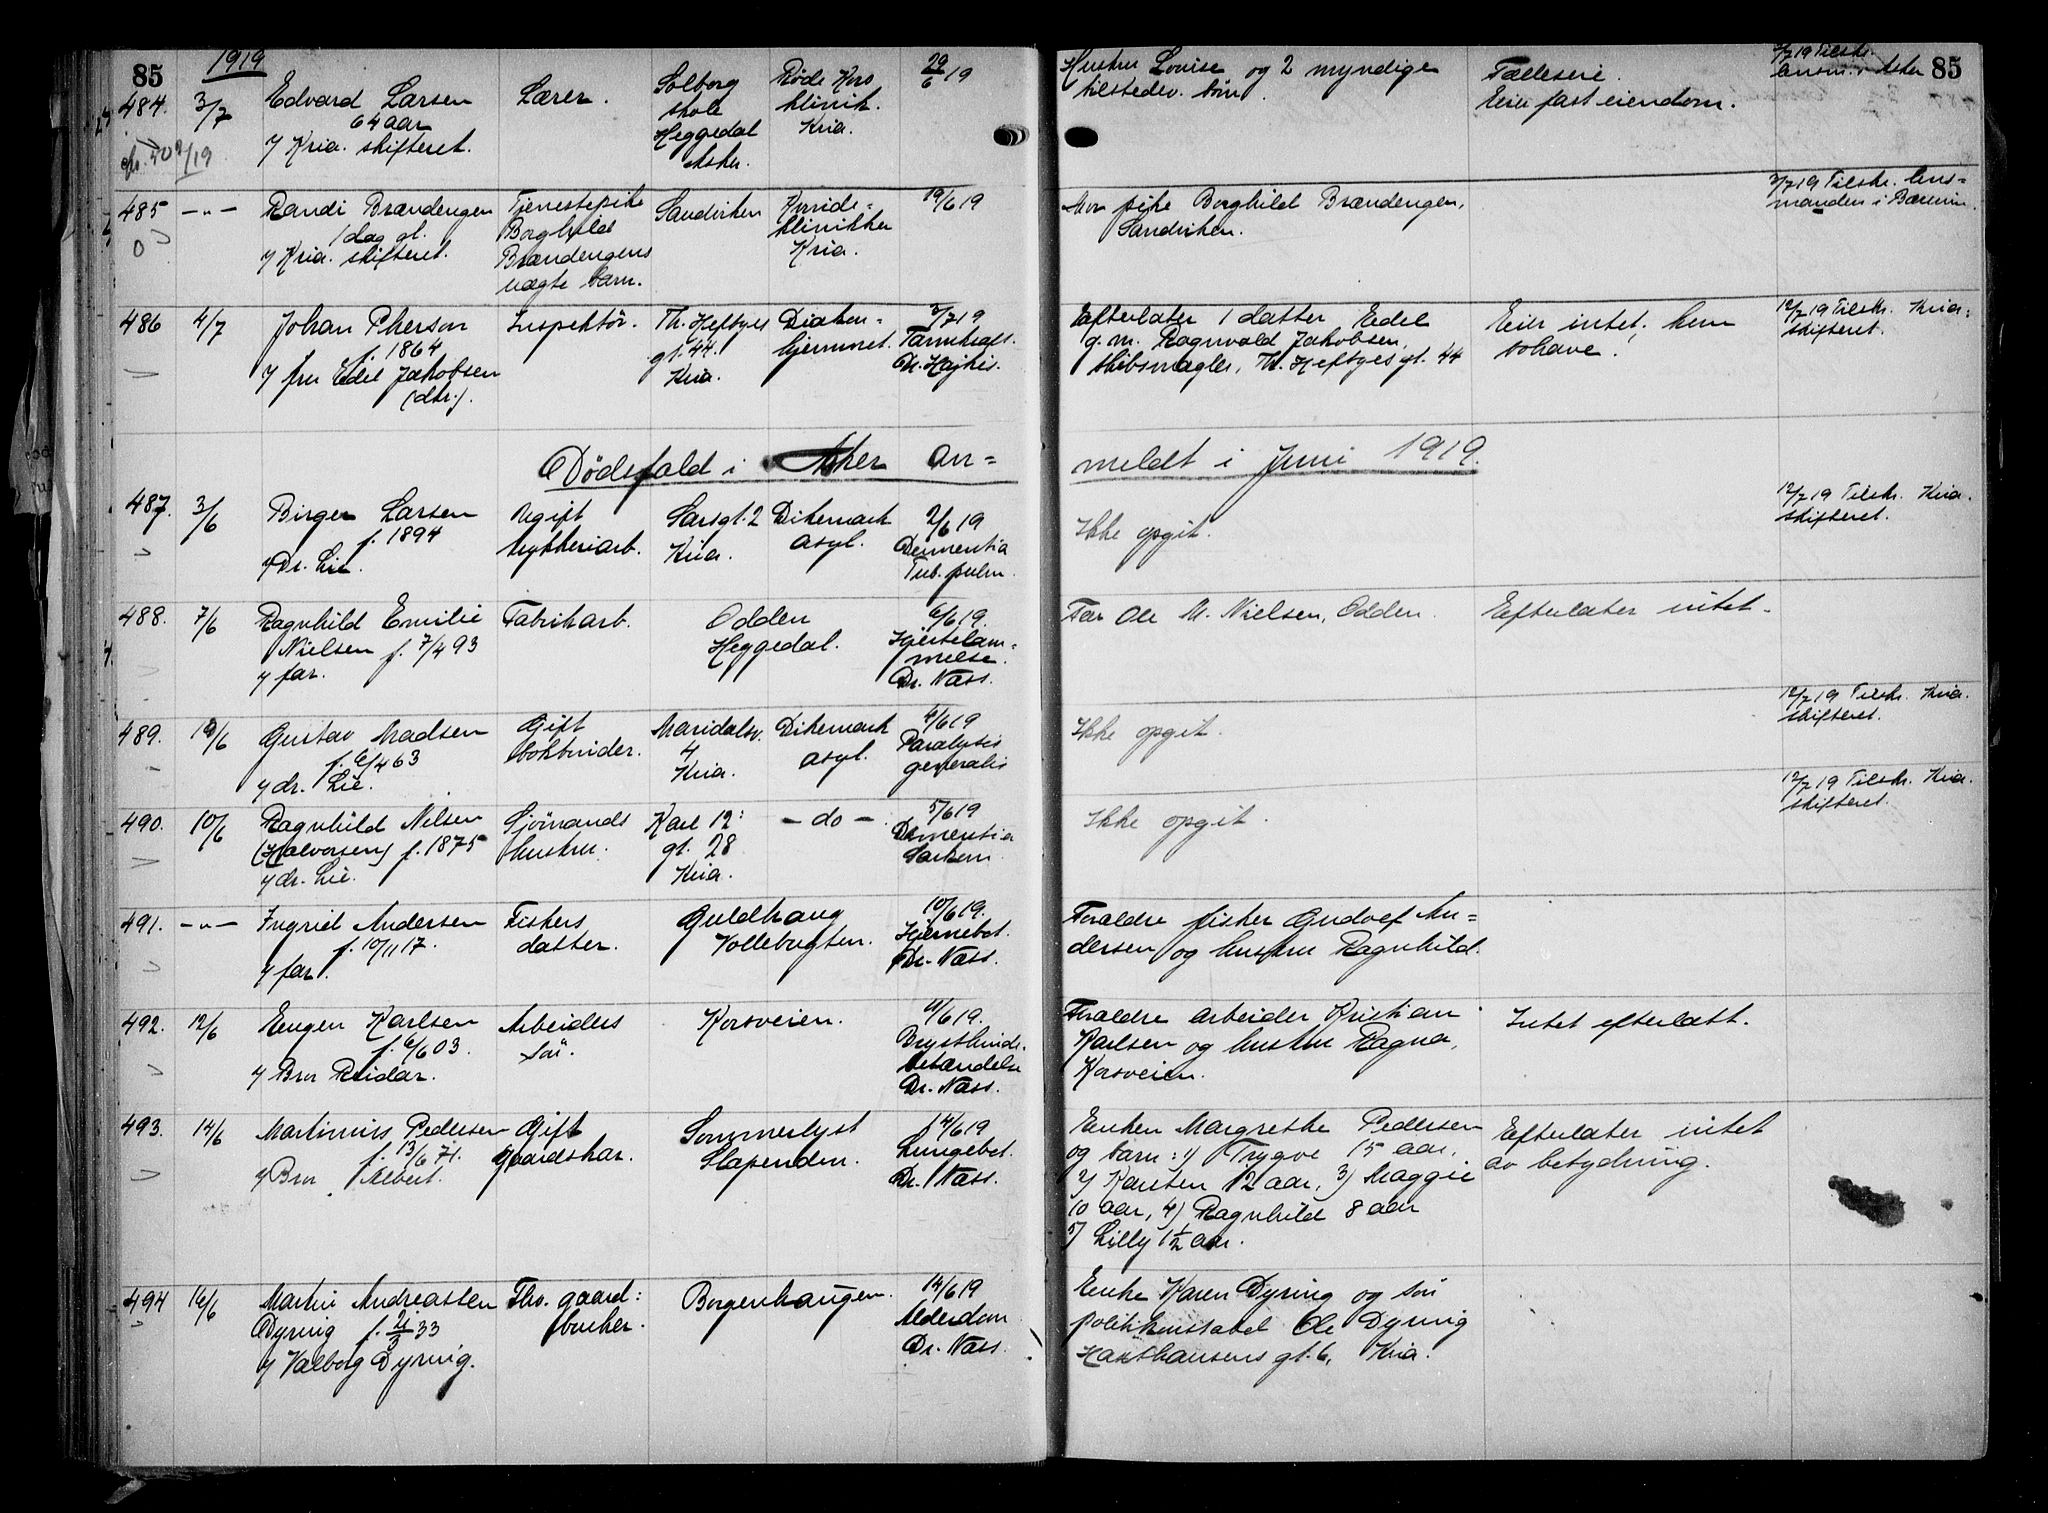 85
1919
484.
3/7
Edvard Larsen
64 aar
v/ Kria. skifteret.
Lærer.
Solborg
skole
Heggedal
Asker.
Röde Kors
klinik.
Kria.
29/6 19
Hustru Louise og 2 myndige
tilstedev. börn.
Fælleseie.
Eier fast eiendom.
3/7 19 Tilskr.
lensm. i Asker
85
485
0
— " —
Randi Brændengen
1 dag gl.
v/ Kria. skifteret.
Tjenestepike
Borghild
Brændengens
uægte barn.
Sandviken
Kvinde-
klinikken
Kria.
19/6 19
Mor pike Borghild Brændengen,
Sandviken.
3/7 19 Tilskr. lens-
manden i Bærum.
486
4/7
Johan Pherson
f. 1864
v/ fru Edel Jakobsen
(dtr.).
Inspektör.
Th. Heftyes
gt. 44.
Kria.
Diakon-
hjemmet.
3/7 19
Efterlater 1 datter Edel
g. m. Ragnvald Jakobsen,
skibsmægler, Th. Heftyes gt. 44
Eier intet, kun
bohave.
12/7 19 Tilskr. Kria.
skifteret.
Dödsfald i Asker an-
meldt i Juni 1919.
487.
3/6
Birger Larsen
f. 1894
v/ Dr. Lie.
Ugift
trykkeriarb.
Sarsgt. 2
Kria.
Dikemark
asyl.
2/6 19
Dementia
Tub. pulm.
Ikke opgit.
12/7 19 Tilskr. Kria.
skifteret.
488.
7/6
Ragnhild Emilie
Nielsen f. 7/4 93
v/ far.
Fabrikarb.
Odden
Heggedal.
6/6 19.
Hjertelam-
melse.
Dr. Næss.
Far Ole M. Nielsen, Odden.
Efterlater intet.
489.
10/6
Gustav Madsen
f. 6/4 63
v/ dr. Lie.
Gift
bokbinder.
Maridalsv.
4
Kria.
Dikemark
asyl.
6/6 19
Paralysis
generalis
Ikke opgit.
12/7 19 Tilskr. Kria.
skifteret.
490.
10/6
Ragnhild Nilsen
(Halvorsen) f. 1875
v/ dr. Lie.
Sjömands
hustru.
Karl 12:
gt. 28
Kria.
— do —
5/6 19
Dementia
Ikke opgit.
12/7 19 Tilskr. Kria.
skifteret.
491.
— " —
Ingrid Andersen
f. 10/11 17.
v/ far.
Fiskers
datter.
Guldhaug
Vollebugten.
10/6 19.
Hjernebet.
Dr. Næss.
Forældre fisker Gudolf An-
dersen og hustru Ragnhild.
492.
12/6
Eugen Karlsen
f. 6/6 03.
v/ Bror Reidar.
Arbeiders
sön.
Korsveien.
11/6 19.
Brysthinde-
betændelse
Dr. Næss.
Forældre arbeider Kristian
Karlsen og hustru Ragna,
Korsveien.
Intet efterlatt.
493.
14/6
Martinius Pedersen
f. 13/6 71.
v/ Bror Albert.
Gift
gaardskar.
Sommerlyst
Slependen.
14/6 19
Lungebet.
Dr. Næss.
Enken Margrethe Pedersen
og barn: 1) Trygve 15 aar,
2) Karsten 12 aar, 3) Maggie
10 aar, 4) Ragnhild 8 aar
5) Lilly 1 1/2 aar.
Efterlater intet
av betydning.
494
16/6
Martin Andreassen
Dyring f. 4/3 33
v/ Valborg Dyring.
Fhv. gaard:
bruker.
Borgenhaugen.
14/6 19
Alderdom
Dr. Næss.
Enke Karen Dyring og sön
politikonstabel Ole Dyring
Haxthausens gt. 6, Kria.